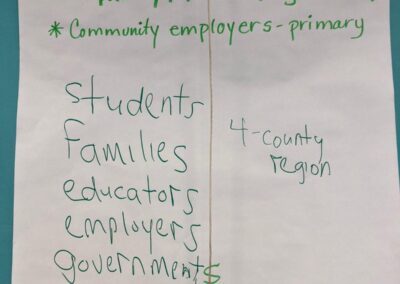 * Community employers - primary
students
families
educators
employers
governments
4-county
region